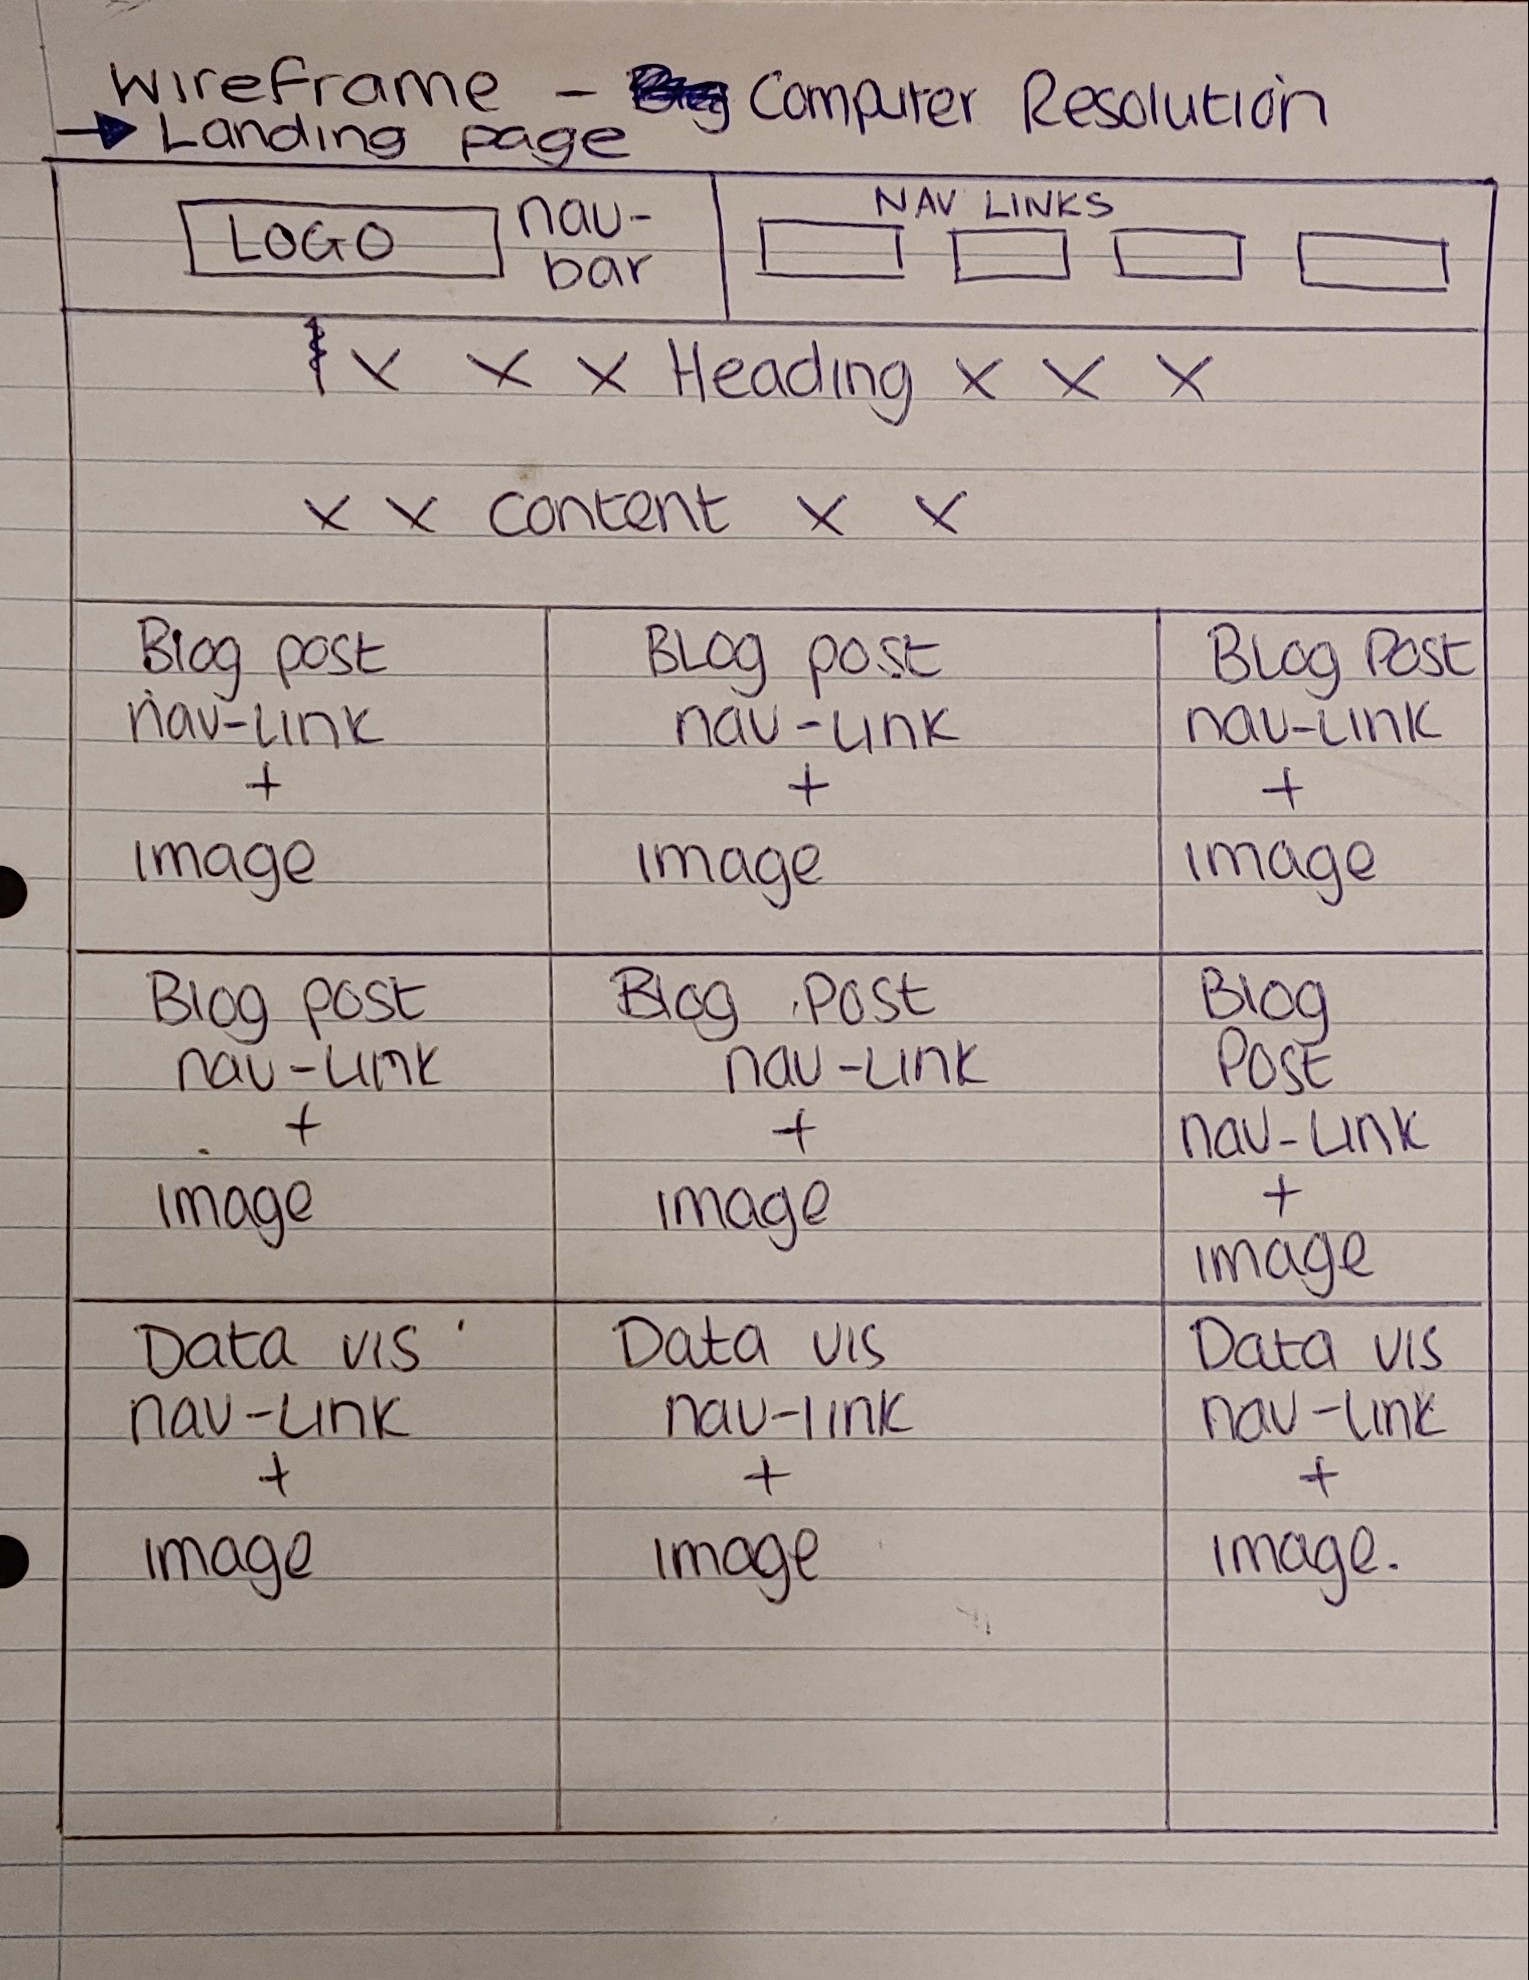 Wireframe - Computer Resolution
Landing page
LOGO nav-
bar
NAV LINKS
x x x Heading x x x
x x content x x
Blog post
nav-link
+
image
BLog post
nav-link
+
image
BLog Post
nav-link
+
image
Blog post
nav-link
+
image
Blog Post
nav-link
+
image
Blog
Post
nav-link
+
image
Data vis
nav-link
+
image
Data vis
nav-link
+
image
Data vis
nav-link
+
image.